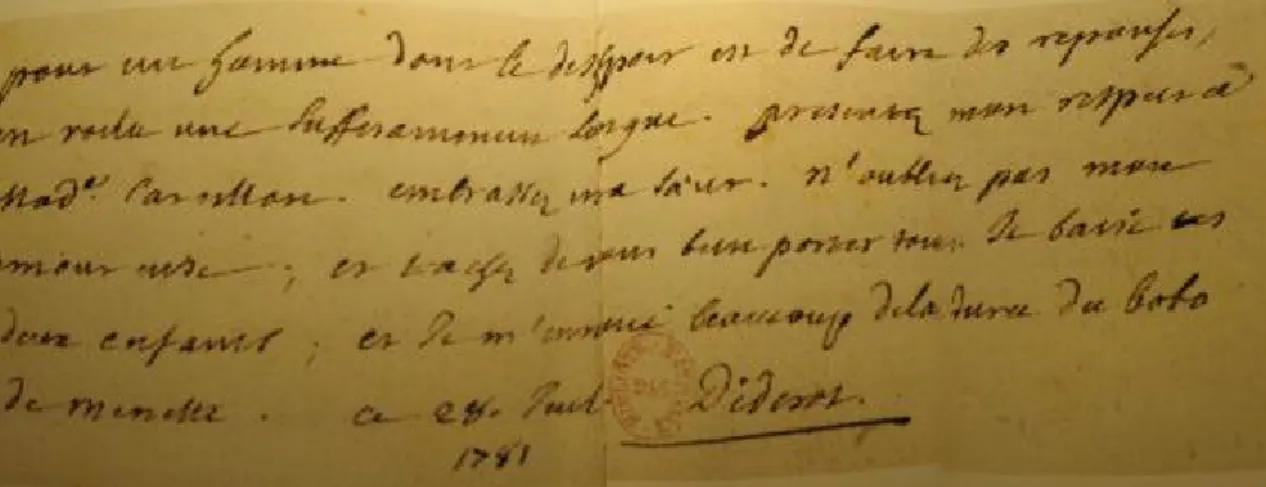 pour un homme dont le desespoir est de faire des reponses,
en voila une suffisamment longue. presentez mon respect à
Mad.e Caroillon. embrassez ma sœur. N'oubliez pas mon
amoureuse ; et tachez de vous bien porter tous. Je baise les
deux enfants ; et Je m'ennuie beaucoup de la durée du bobo
de minette. ce 28. Juil.
Diderot.
1781